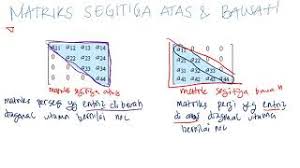 MATRIKS SEGITIGA ATAS & BAWAH
a11 a12 a13 a14
0 a22 a23 a24
0 0 a33 a34
0 0 0 a44
matriks segitiga atas
matriks persegi yg entri di bawah
diagonal utama bernilai nol
a11 0 0 0
a21 a22 0 0
a31 a32 a33 0
a41 a42 a43 a44
matriks segitiga bawah
matriks persegi yg entri
di atas diagonal utama
bernilai nol